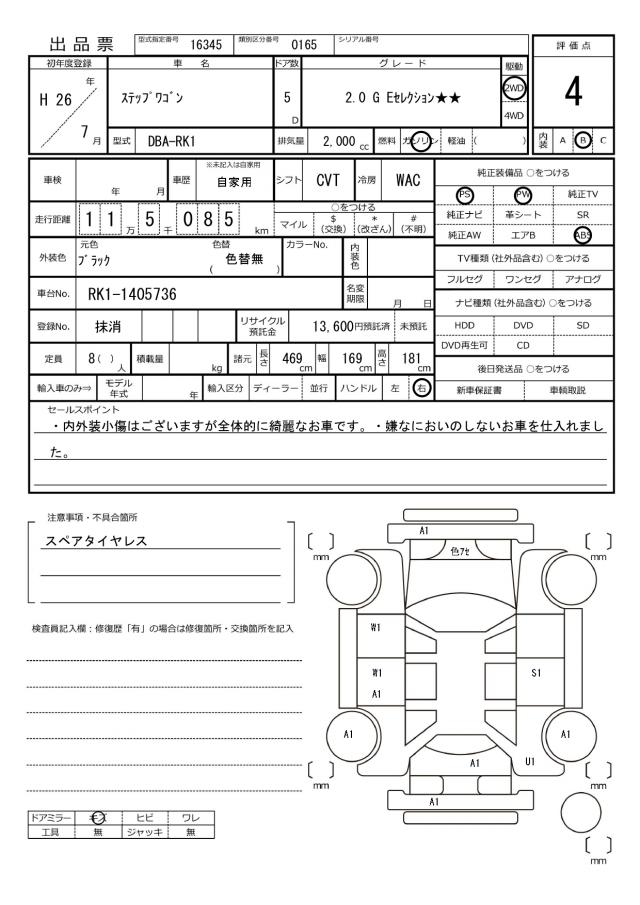 出品票
型式指定番号 16345 類別区分番号 0165 シリアル番号
評価点
初年度登録 車名 ドア数 グレード 駆動
H 26 年 7 月
ステップワゴン
5 D
2.0 G Eセレクション★★
2WD
4WD
4
型式 DBA-RK1 排気量 2,000 cc 燃料 ガソリン 軽油 ( ) 内装 A B C
車検 年 月 車歴 ※未記入は自家用 自家用 シフト CVT 冷房 WAC
純正装備品 ○をつける
PS PW 純正TV
純正ナビ 革シート SR
純正AW エアB ABS
走行距離 11万5千085 km
○をつける
マイル $(交換) *(改ざん) #(不明)
外装色 元色 ブラック 色替 ( 色替無 ) カラーNo. 内装色
TV種類(社外品含む) ○をつける
フルセグ ワンセグ アナログ
車台No. RK1-1405736 名変期限 月 日
ナビ種類(社外品含む) ○をつける
登録No. 抹消 リサイクル預託金 13,600円預託済 未預託
HDD DVD SD
DVD再生可 CD
定員 8( )人 積載量 kg 諸元 長さ 469 cm 幅 169 cm 高さ 181 cm
後日発送品 ○をつける
輸入車のみ⇒ モデル年式 年 輸入区分 ディーラー 並行 ハンドル 左 右
新車保証書 車輌取説
セールスポイント
・内外装小傷はございますが全体的に綺麗なお車です。・嫌なにおいのしないお車を仕入れまし
た。
注意事項・不具合箇所
スペアタイヤレス
検査員記入欄：修復歴「有」の場合は修復箇所・交換箇所を記入
A1
色ｱｾ
mm
mm
W1
W1
A1
S1
A1
A1
A1
U1
A1
mm
mm
mm
ドアミラー キズ ヒビ ワレ
工具 無 ジャッキ 無